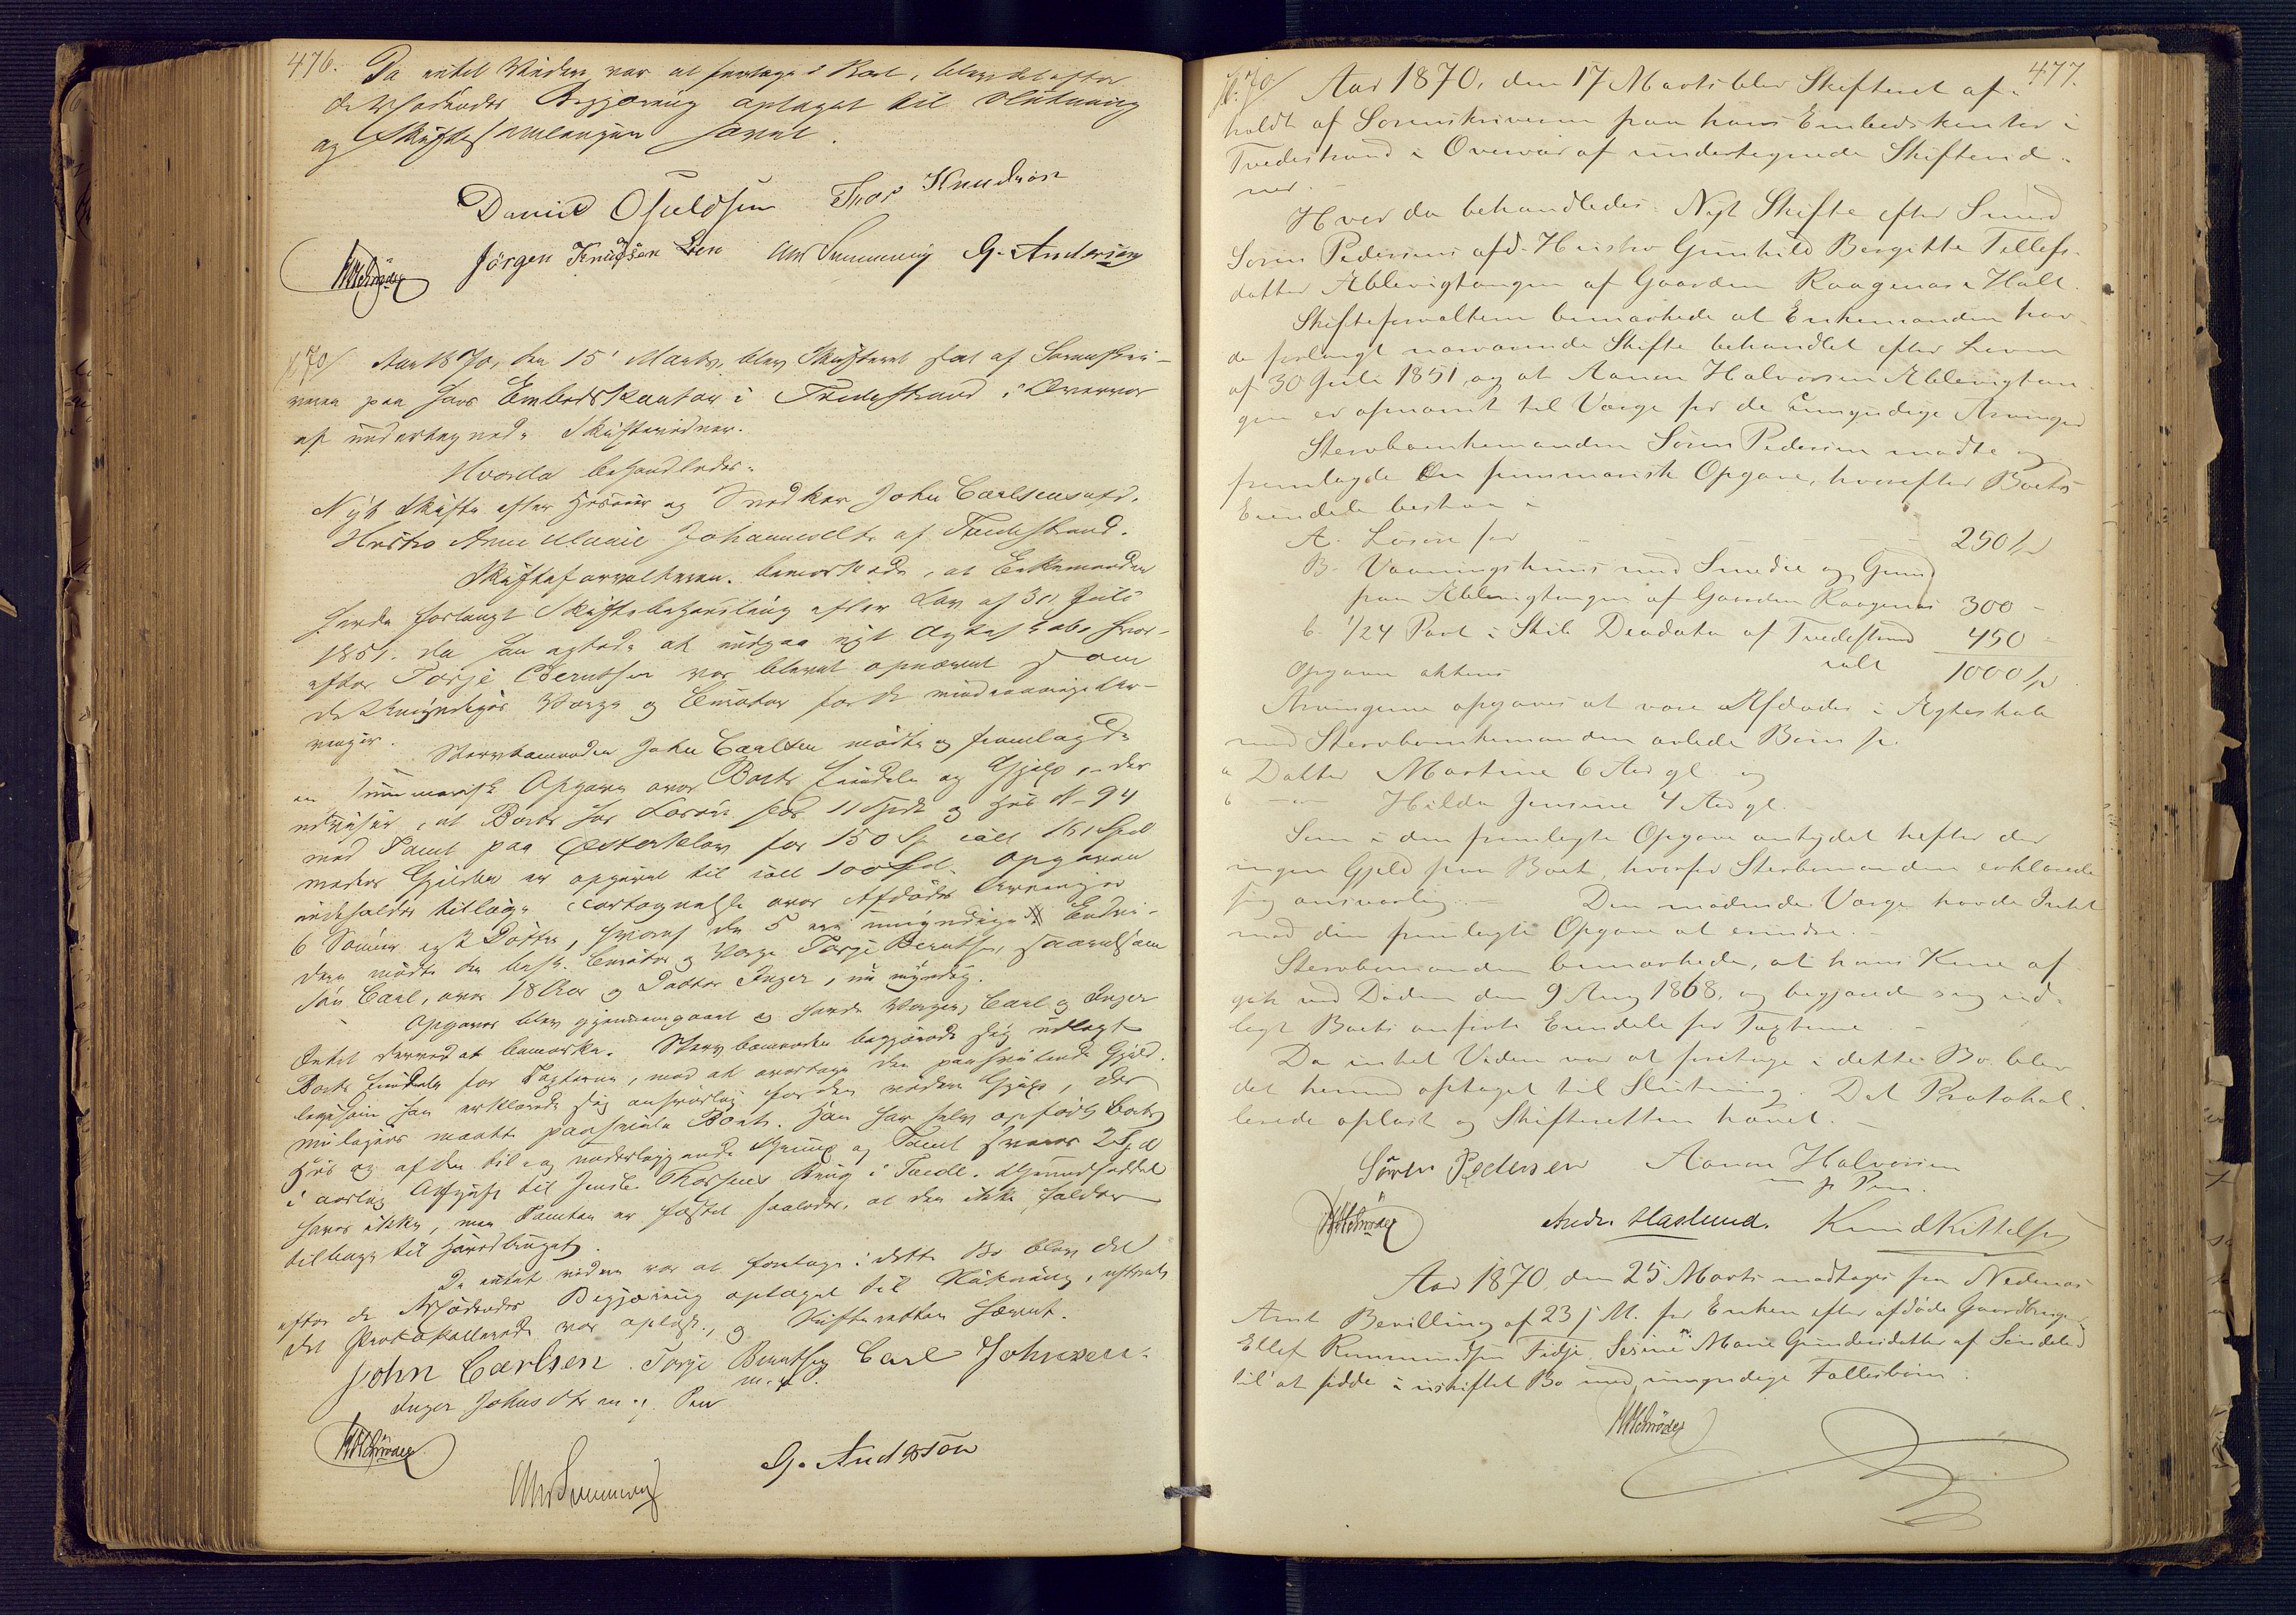 476.
Da intet Videre var at foretage i Boet, blev det efter
de Mødendes Begjæring optaget til Slutning
og Skiftesamlingen hævet.
Daniel Osuldsen Thor Knudsen
Jörgen Knudsen Lien G. Andersen
NHSchrøder
/70/ Aar 1870, den 15' Marts, blev Skifteret sat af Sorenskri-
veren paa hans Embedskontor i Tvedestrand i Overvær
af undertegnede Skiftevidner.
Hvorda behandledes:
Nyt Skifte efter Huseier og Snedker John Carlsens afd.
Hustro Anne Marie Johannesdtr af Tvedestrand.
Skifteforvalteren bemærkede, at Enkemanden
havde forlangt Skiftebehandling efter Lov af 30 Juli
1851. da han agtede at indgaa nyt Ægteskab, hvor-
efter Torje Berntsen var blevet opnævnt som
de Umyndiges Værge og Curator for de mindreaarige Ar-
vinger.
Stervbomanden John Carlsen mødte og fremlagde
en summarisk Opgave over Boets Eiendele og Gjæld, der
udviser, at Boets har Løsøre for 11 Spdlr og Hus N- 94
med Tomt paa Østerklev for 150 Sp ialt 161 Spd
medens Gjelden er opgivet til ialt 100 Spd. Opgaven
indeholder tillige Fortegnelse over Afdødes Arvinger
6 Sønner og 2 Døttre, hvoraf de 5 ere umyndige. Endvi-
dere mødte den besk. Curator og Værge Torje Berntsen, saavelsom
Søn Carl, over 18 Aar og Datter Inger, nu myndig.
Opgaven blev gjennemgaaet og havde Værgen, Carl og Inger
Intet derved at bemærke. Stervbomanden begjærede sig udlagt
Boets Eiendele for Taxterne, mod at overtage den paahvilende Gjæld.
ligesom han erklærede sig ansvarlig for den videre Gjæld, der
muligens maatte paahvile Boet. Han har selv opført Boets
Hus og af den til og underliggende Grund og Tomt svares 2 Spd
i aarlig Afgift til Jensine Thorsens Enke i Tvede. Grundseddel
haves ikke, men Tomten er fæstet saaledes, at den ikke falder
tilbage til Hovedbruget.
Da intet videre var at foretage i dette Bo blev det
efter de Mødendes Begjæring optaget til Slutning, efterat
det Protokollerede var oplæst, og Skifteretten hævet.
John Carlsen. Torje Berntsen Carl Johnsen.
m. p. P.
Inger Johnsdtr m. p. Pen
NHSchrøder
G. Anderson
477.
/70/ Aar 1870, den 17 Marts blev Skifteret af-
holdt af Sorenskriveren paa hans Embedskontor i
Tvedestrand i Overvær af undertegnede Skiftevid-
ner.
Hver da behandledes: Nyt Skifte efter Smed
Søren Pedersens afd. Hustro Gunhild Bergitte Tellefs-
datter Ablevigtangen af Gaarden Raagenæs i Holt.
Skifteforvalteren bemærkede at Enkemanden hav-
de forlangt nærværende Skifte behandlet efter Loven
af 30 Juli 1851, og at Aanon Halvorsen Ablevigtan-
gen er opnævnt til Værge for de umyndige Arvinger
Stervboenkemanden Søren Pedersen mødte og
fremlagde en summarisk Opgave, hvorefter Boets
Eiendele bestaar i
A. Løsøre for - - - 250 Sp
B. Vaaningshuus med Smedie og Grund
paa Ablevigtangen af Gaarden Raagenæs 300 -
C. 1/24 Part i Skib Deodata af Tvedestrand 450 -
Opgaven aktens ialt 1000 Sp.
Arvingerne opgaves at være Afdødes i Ægteskab
med Stervboenkemanden avlede Børn s.
a Datter Martine 6 Aar gl. og
b —"— Hilda Jensine 4 Aar gl.
Som i den fremlagte Opgave antydet hefter der
ingen Gjæld paa Boet, hvorfor Stervbomanden erklærede
sig ansvarlig. — Den mødende Værge havde Intet
mod den fremlagte Opgave at erindre.
Stervbomanden bemærkede, at hans Kone af-
gik ved Døden den 9 Aug 1868, og begjærede sig ud-
lagt Boets anførte Eiendele for Taxterne. -
Da intet Videre var at foretage i dette Bo blev
det hermed optaget til Slutning. Det Protokol-
lerede oplæst og Skifteretten hævet. -
Sören Pedersen Aanon Halvorsen
m p Pen.
NHSchrøder Anders Haslund. Knud Kittelsen
Aar 1870, den 25 Marts modtages fra Nedenæs
Amt Bevilling af 23 s M. for Enken efter afdøde Gaardbruger
Ellef Rommundsen Fidje, Serine Marie Gundersdatter af Søndeled
til at sidde i uskiftet Bo med umyndige Fællesbørn.
NHSchrøder